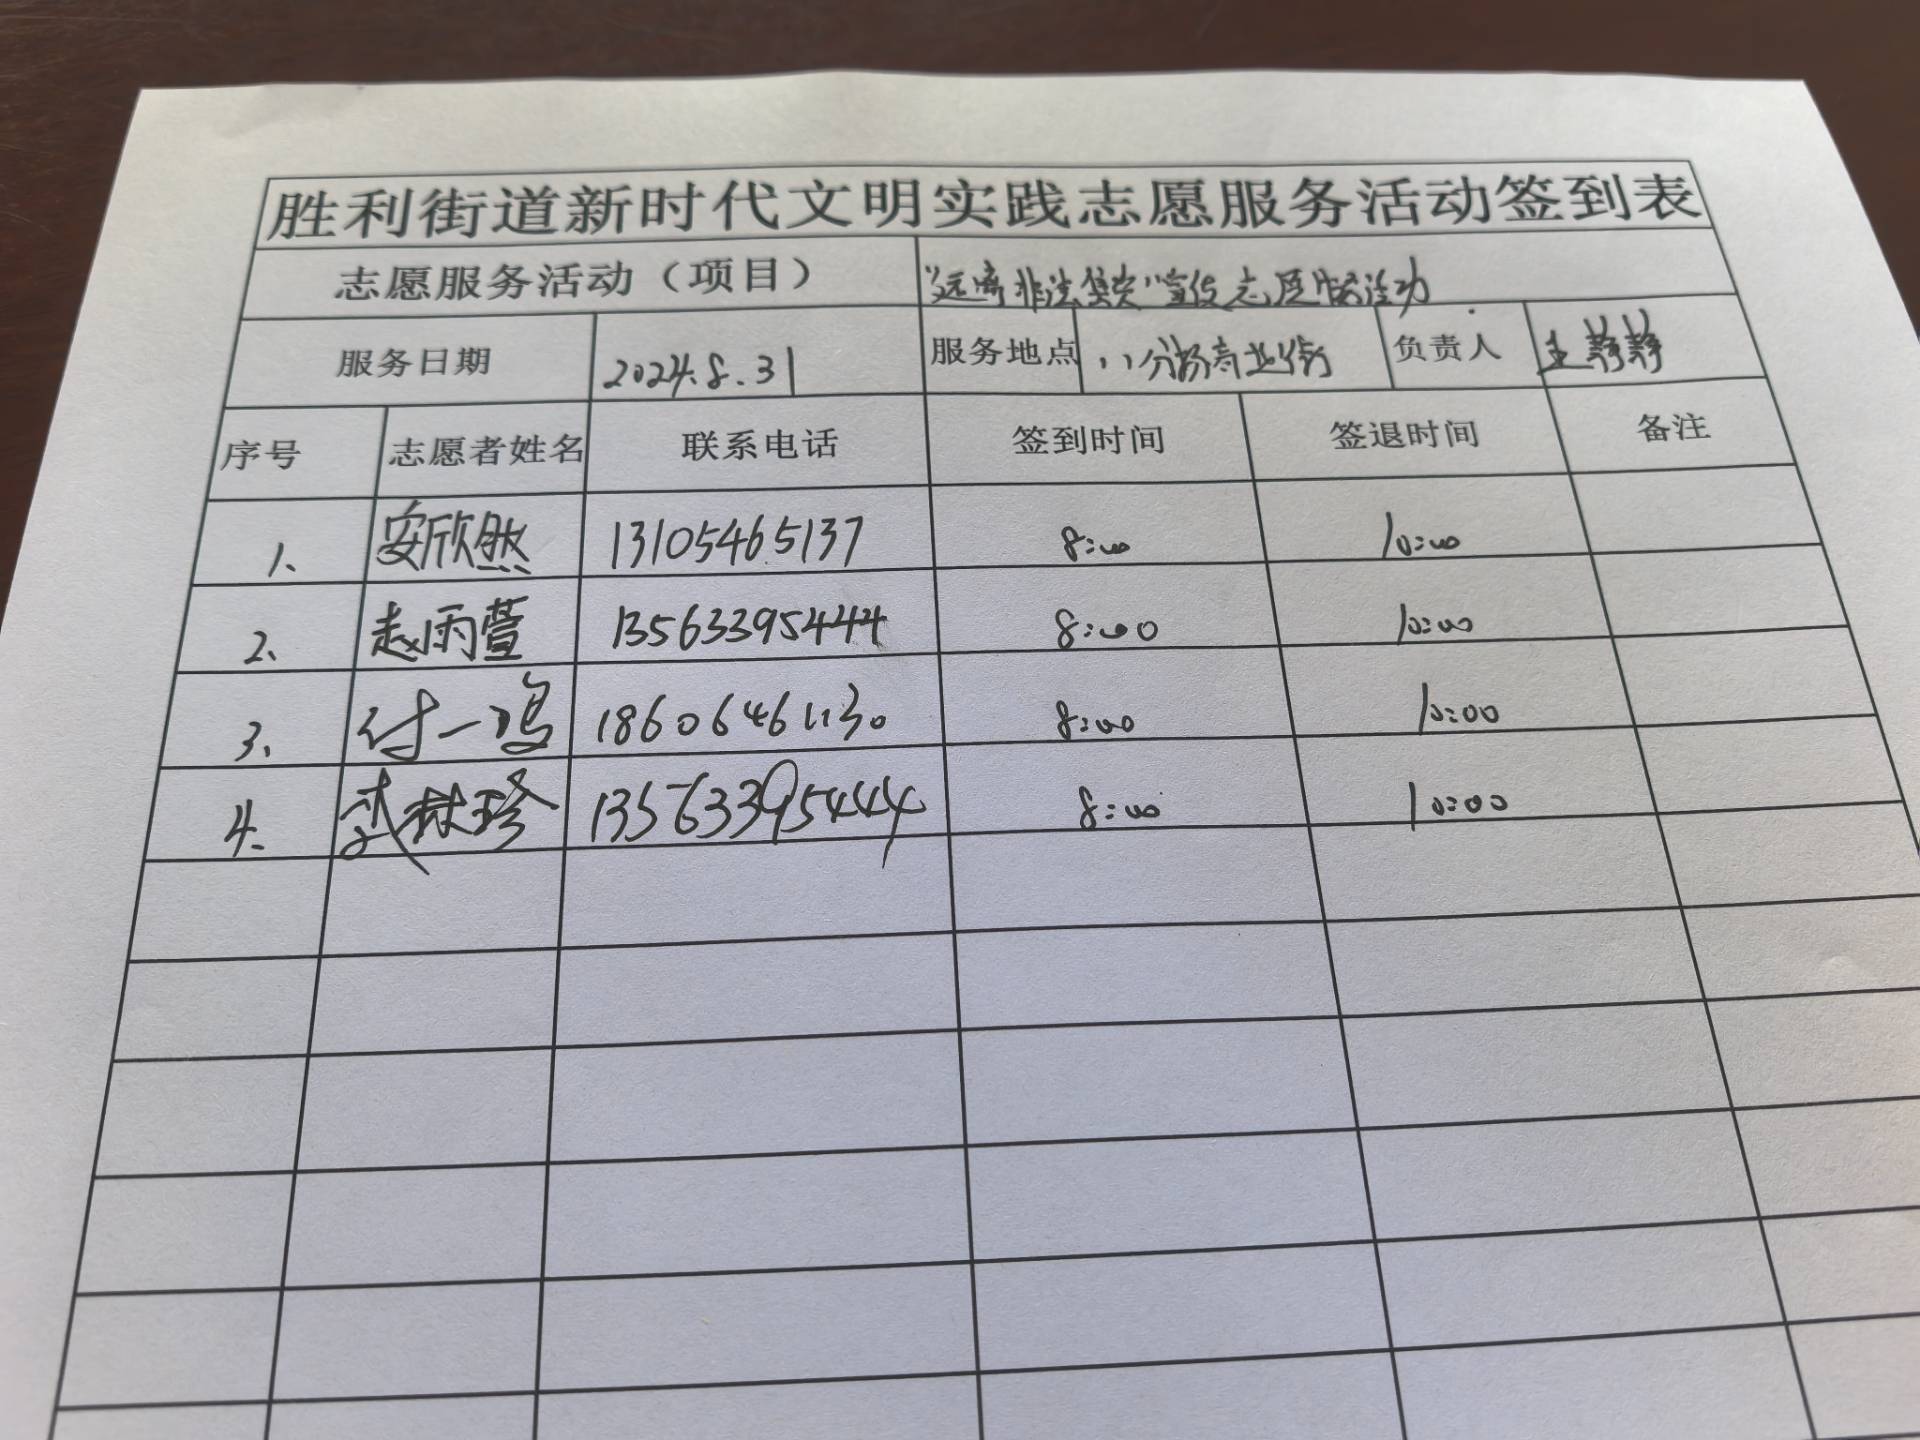 胜利街道新时代文明实践志愿服务活动签到表
志愿服务活动（项目） "远离非法集资"宣传志愿服务活动
服务日期 2024.8.31 服务地点 八分场商业街 负责人 王静静
序号 志愿者姓名 联系电话 签到时间 签退时间 备注
1、 安欣然 13105465137 8:00 10:00
2、 赵雨萱 13563395444 8:00 10:00
3、 付一鸣 18606461130 8:00 10:00
4、 武林珍 13563395444 8:00 10:00